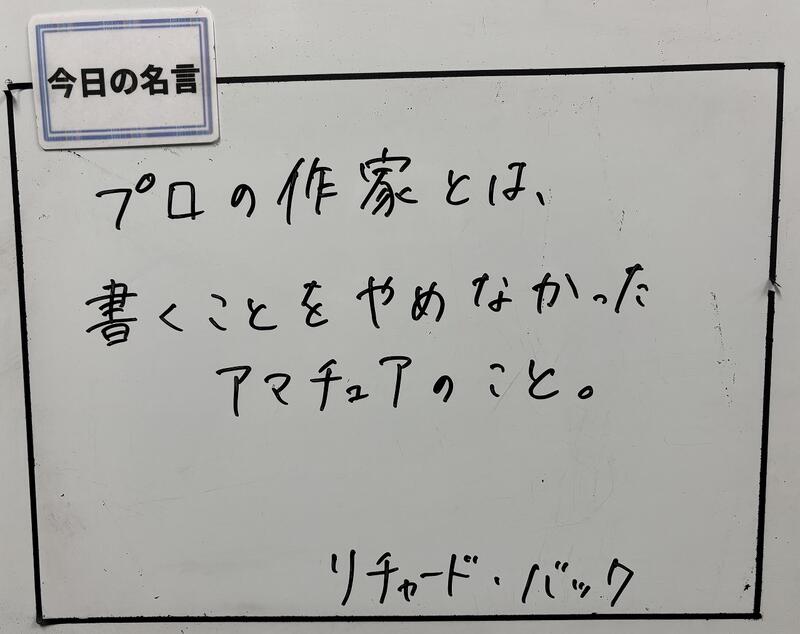 今日の名言
プロの作家とは、
書くことをやめなかった
アマチュアのこと。
リチャード・バック